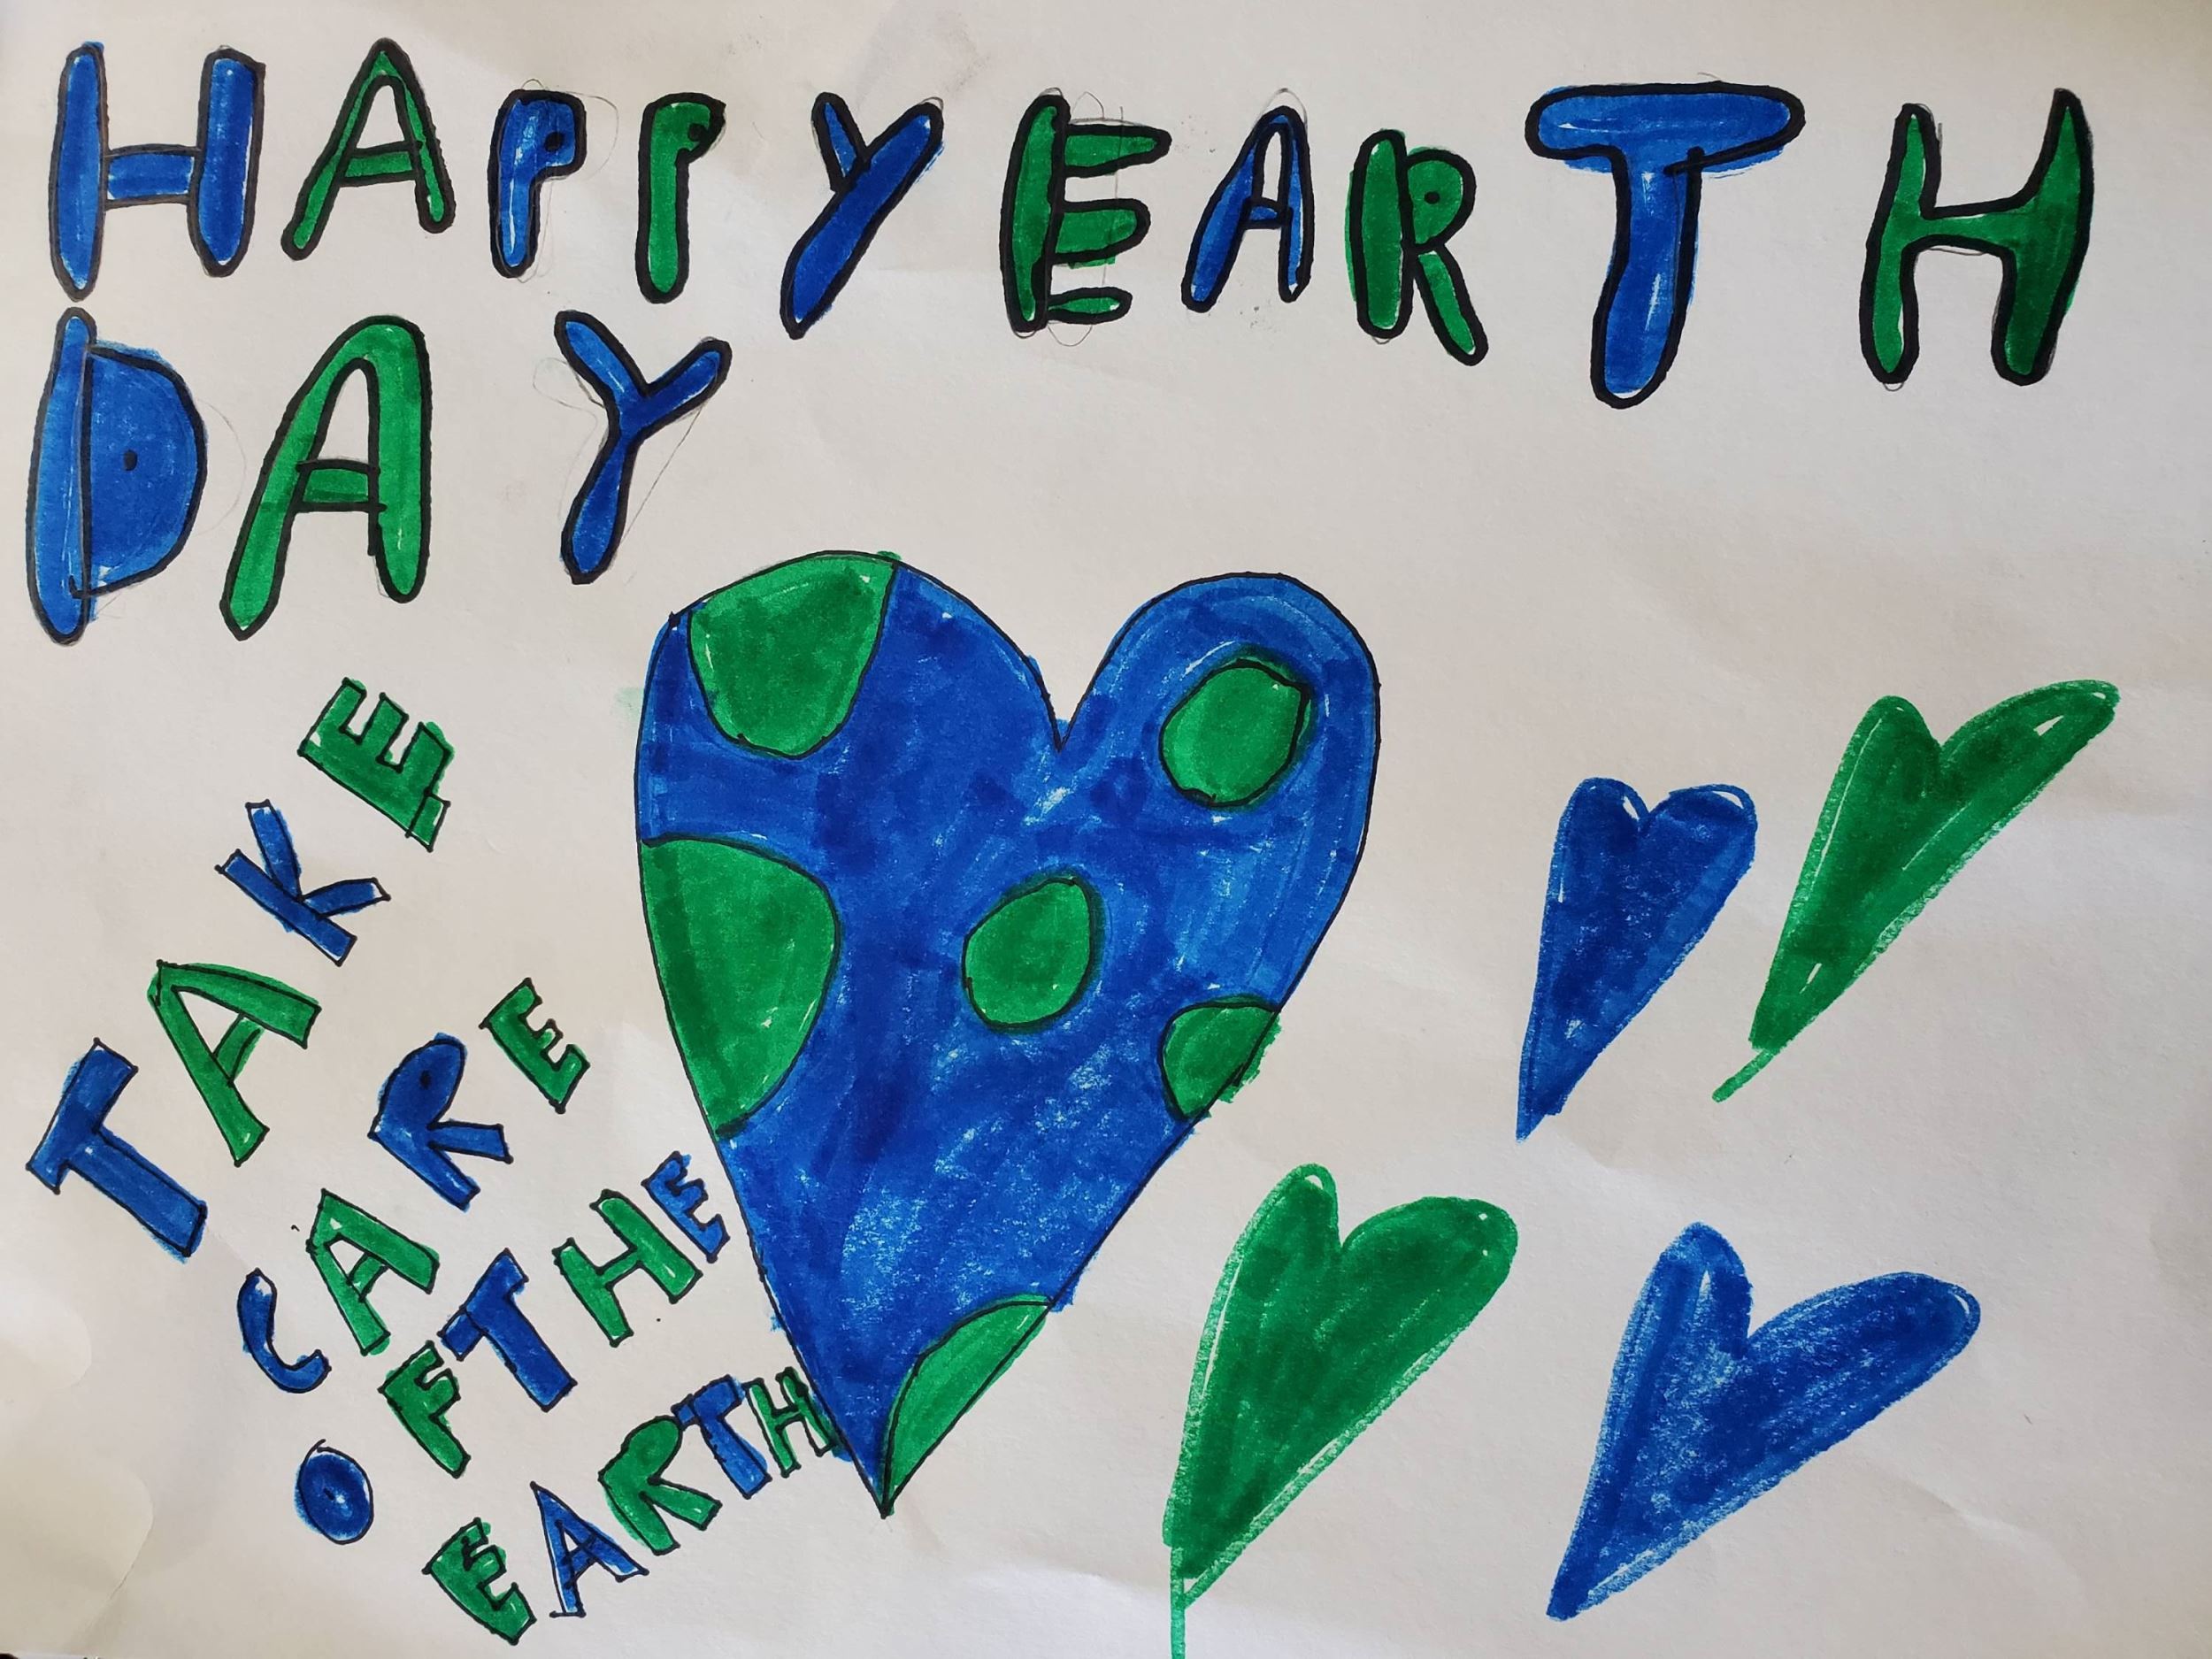 HAPPY EARTH
DAY
TAKE
CARE
OF THE
EARTH